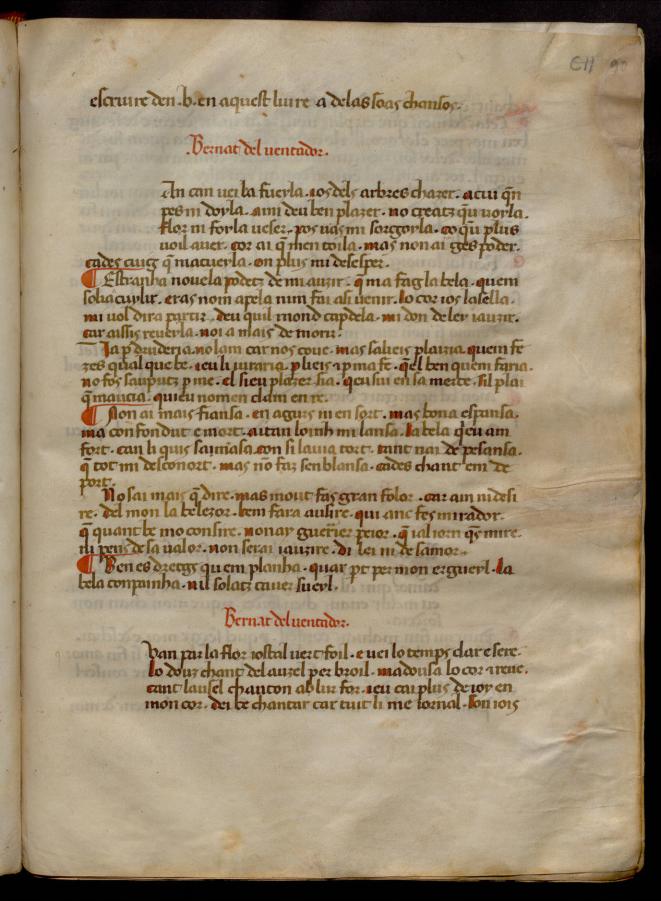 CII 90
escriure den .b. en aquest liure a de las soas chansos.
.Bernat del uentador.
An can uei la fueyla . ios dels arbres chazer . a cui qn
pes ni doyla . a mi deu ben plazer . no creatz qu uorla .
flor ni forla uezer . pos uas mi sorgoyla . co qu plus
uoil auer . cor ai q men toila . mas non ai ges poder .
cades cuig q macueyla . on plus mi desesper .
Estranha nouela podetz de mi auzir . q ma fag la bela . quem
solia cuylir . eras nom apela num fai asi uenir . lo cor ios lasella .
mi uol dira partir . deu quil mond capdela . mi don de ley iauzir .
car aissis reuerla . noi a mais de morir .
Ia p druderia . nolam car nos coue . mas saliels plairia . quem fe
zes qual que be . ieu li iuraria . p lieis . e p ma fe . qel ben quem faria .
no fos sauputz p me . el sieu plazer sia . qeu sui en sa merce . sil plai
q maucia . quieu nomen clam en re .
Non ai mais fiansa . en agurs ni en sort . mas bona espansa .
ma confondut e mort . aitan loinh mi lansa . la bela qeu am
fort . can li quis samasa con si lauia tort . tant nai de pesansa .
q tot mi desconort . mas no faz senblansa . cades chant em de
port .
No sai mais q dire . mas mout fas gran folor . car am ni desi
re . del mon la belezor . bem fara ausire . qui anc fes mirador .
q quant be mo consire . non ay guerier peior . q ial iorn qs mire .
ni pens de sa ualor . non serai iauzire . di lei ni de samor .
Ben es dretgs qu em planha . quar pt per mon ergueyl . la
bela conpainha . nil solatz cauer sueyl .
Bernat del uentador .
Van par la flor iostal uert foil . e uei lo temps clar e sere .
lo douz chant del auzel per broil . madousa lo cor e reue .
tant lausel chanton ab lur for . ieu cai plus de ioy en
mon cor . dei be chantar car tuit li me iornal . son iois